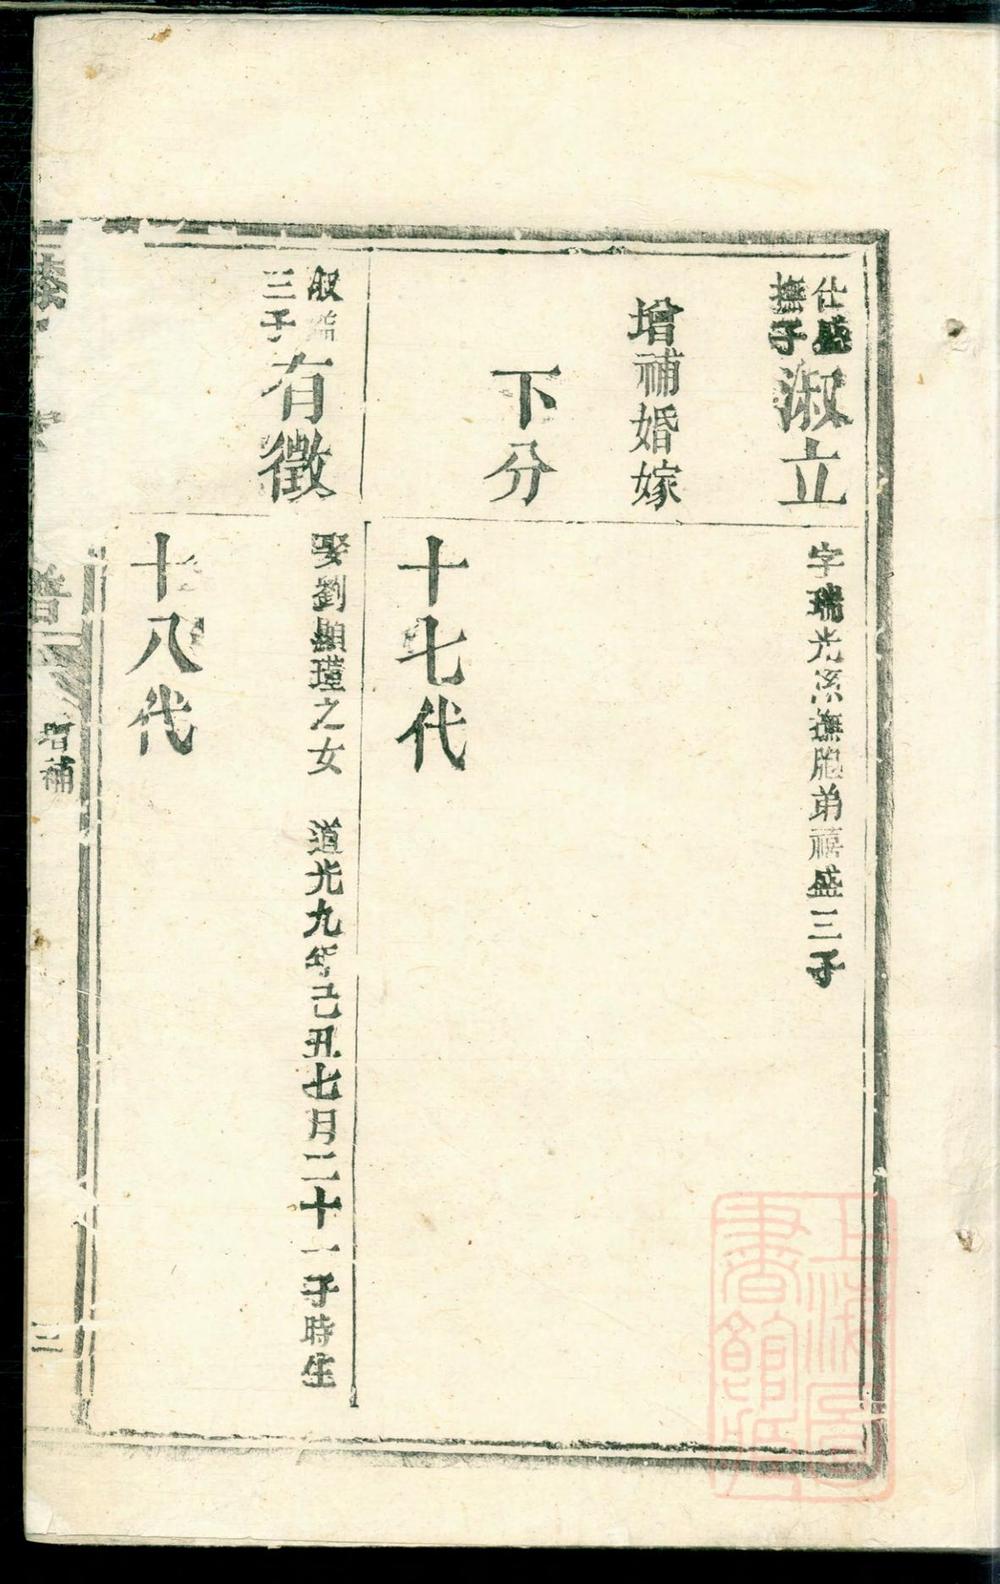 仕盛
撫子
淑立
字瑞光系撫胞弟禧盛三子
增補婚嫁
下分
十七代
三子
有徵
娶劉顯瑾之女 道光九年己丑七月二十一子時生
十八代
譜
增補
三
上海圖
書館藏